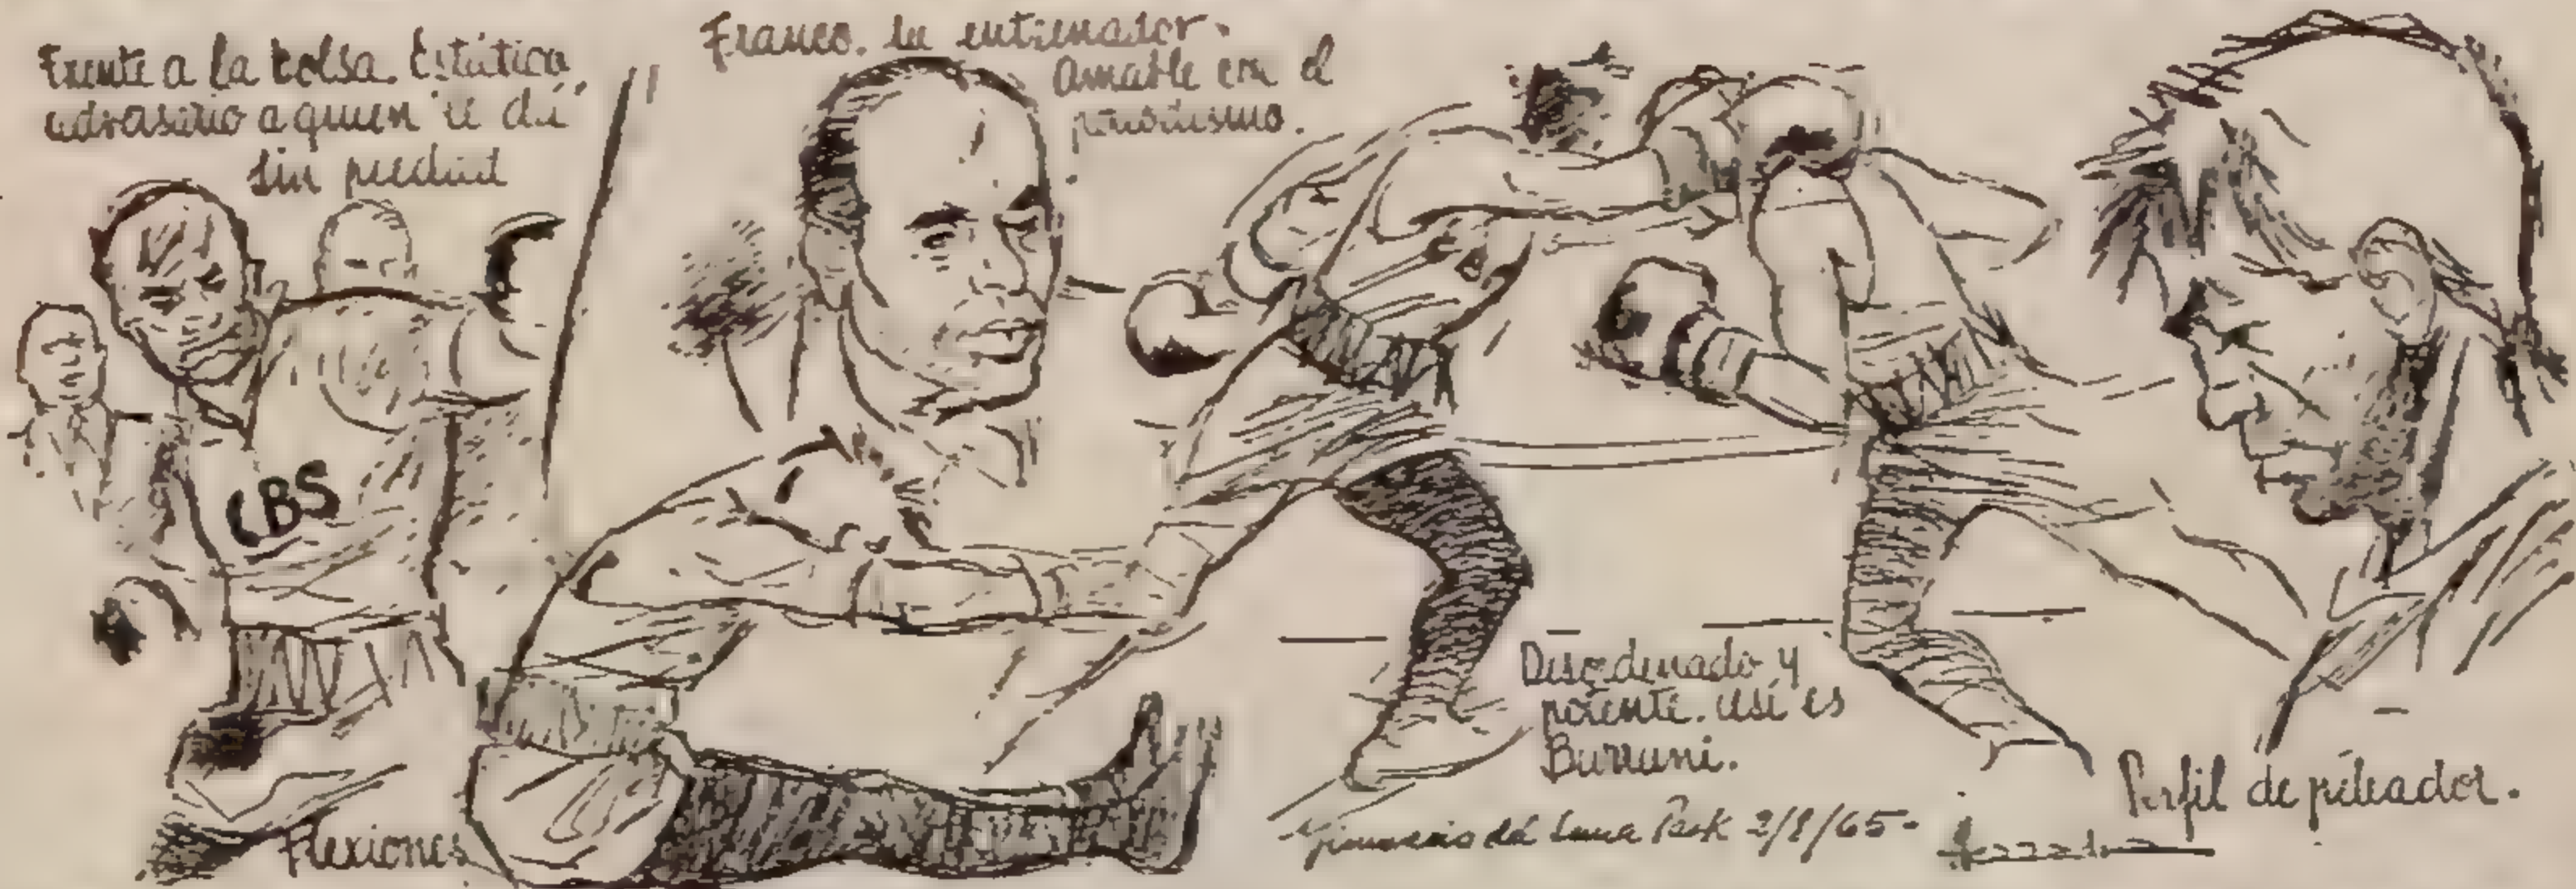 Frente a la bolsa. Estático
adversario a quien le dá
sin piedad
Franco. su entrenador.
Amable con el
periodismo.
CBS
Flexiones
Desordenado y
potente. así es
Burruni.
Gimnasio del Luna Park 2/8/65-
Perfil de peleador.